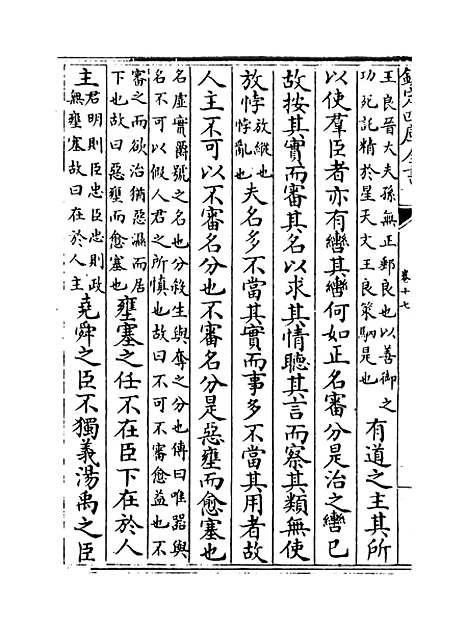 欽定四庫全書
卷十七
王良晉大夫孫無正郵良也以善御之
功死託精於星天文王良策駟是也
有道之主其所
以使羣臣者亦有轡其轡何如正名審分是治之轡已
故按其實而審其名以求其情聽其言而察其類無使
放悖
放縱也
悖亂也
夫名多不當其實而事多不當其用者故
人主不可以不審名分也不審名分是惡壅而愈塞也
名虛實爵號之名也分殺生與奪之分也傳曰唯器與
名不可以假人君之所慎也故曰不可不審愈益也不
審之而欲治猶惡濕而居
下也故曰惡壅而愈塞也
壅塞之任不在臣下在於人
主
君明則臣忠臣忠則政
無壅塞故曰在於人主
堯舜之臣不獨義湯禹之臣